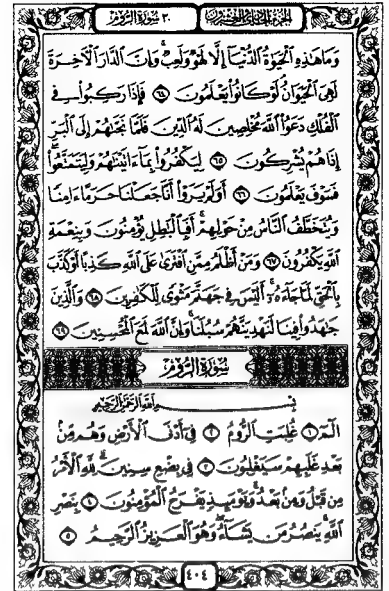 الجزء الحادي والعشرون ٣٠ سورة الروم
وَمَا هَٰذِهِ ٱلْحَيَوٰةُ ٱلدُّنْيَآ إِلَّا لَهْوٌ وَلَعِبٌ ۚ وَإِنَّ ٱلدَّارَ ٱلْءَاخِرَةَ
لَهِىَ ٱلْحَيَوَانُ ۚ لَوْ كَانُوا۟ يَعْلَمُونَ ٦٤ فَإِذَا رَكِبُوا۟ فِى
ٱلْفُلْكِ دَعَوُا۟ ٱللَّهَ مُخْلِصِينَ لَهُ ٱلدِّينَ فَلَمَّا نَجَّىٰهُمْ إِلَى ٱلْبَرِّ
إِذَا هُمْ يُشْرِكُونَ ٦٥ لِيَكْفُرُوا۟ بِمَآ ءَاتَيْنَٰهُمْ وَلِيَتَمَتَّعُوا۟ ۖ
فَسَوْفَ يَعْلَمُونَ ٦٦ أَوَلَمْ يَرَوْا۟ أَنَّا جَعَلْنَا حَرَمًا ءَامِنًا
وَيُتَخَطَّفُ ٱلنَّاسُ مِنْ حَوْلِهِمْ ۚ أَفَبِٱلْبَٰطِلِ يُؤْمِنُونَ وَبِنِعْمَةِ
ٱللَّهِ يَكْفُرُونَ ٦٧ وَمَنْ أَظْلَمُ مِمَّنِ ٱفْتَرَىٰ عَلَى ٱللَّهِ كَذِبًا أَوْ كَذَّبَ
بِٱلْحَقِّ لَمَّا جَآءَهُۥٓ ۚ أَلَيْسَ فِى جَهَنَّمَ مَثْوًى لِّلْكَٰفِرِينَ ٦٨ وَٱلَّذِينَ
جَٰهَدُوا۟ فِينَا لَنَهْدِيَنَّهُمْ سُبُلَنَا ۚ وَإِنَّ ٱللَّهَ لَمَعَ ٱلْمُحْسِنِينَ ٦٩
سُورَةُ الرُّومِ
بِسْمِ ٱللَّهِ ٱلرَّحْمَٰنِ ٱلرَّحِيمِ
الٓمٓ ١ غُلِبَتِ ٱلرُّومُ ٢ فِىٓ أَدْنَى ٱلْأَرْضِ وَهُم مِّنۢ
بَعْدِ غَلَبِهِمْ سَيَغْلِبُونَ ٣ فِى بِضْعِ سِنِينَ ۗ لِلَّهِ ٱلْأَمْرُ
مِن قَبْلُ وَمِنۢ بَعْدُ ۚ وَيَوْمَئِذٍ يَفْرَحُ ٱلْمُؤْمِنُونَ ٤ بِنَصْرِ
ٱللَّهِ ۚ يَنصُرُ مَن يَشَآءُ ۖ وَهُوَ ٱلْعَزِيزُ ٱلرَّحِيمُ ٥
٤٠٤